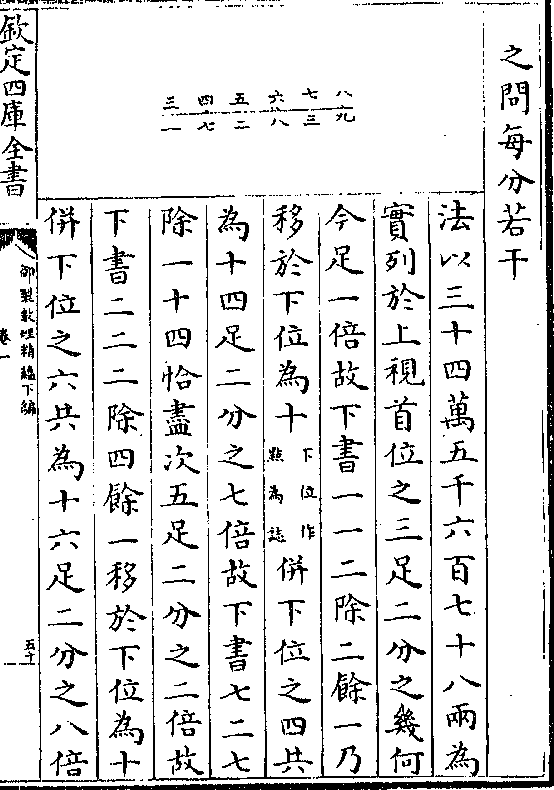 之問每分若干
三四五六七八
一七二八三九
法以三十四萬五千六百七十八兩為
實列於上視首位之三足二分之幾何
今足一倍故下書一一二除二餘一乃
移於下位為十下位作點為誌併下位之四共
為十四足二分之七倍故下書七二七
除一十四恰盡次五足二分之二倍故
下書二二二除四餘一移於下位為十
併下位之六共為十六足二分之八倍
欽定四庫全書
御製數理精蘊下編
卷一
五十